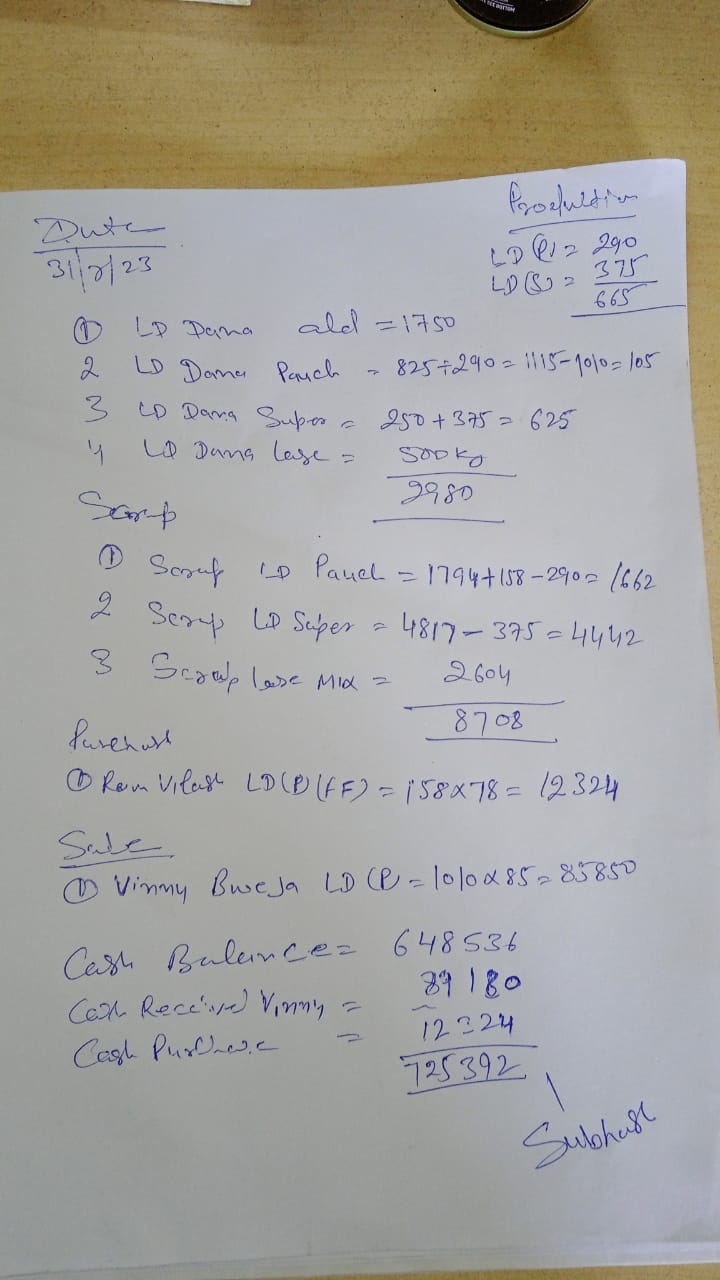 Date
31/7/23
Production
LD (P) = 290
LD (S) = 375
665
① LD Dana old = 1750
2 LD Dana Pauch = 825+290 = 1115-1010 = 105
3 LD Dana Super = 250 + 375 = 625
4 LD Dana Lase = 500 kg
2980
Scrap
① Scrap LD Pauch = 1794+158-290 = 1662
2 Scrap LD Super = 4817-375 = 4442
3 Scrap lase Mix = 2604
8708
Purchase
① Ram Vilash LD (P) (FF) = 158x78 = 12324
Sale
① Vinny Bweja LD (P = 1010x85 = 85850
Cash Balance = 648536
Cash Received Vinny = 89180
Cash Purchase = - 12324
725392
Subhash